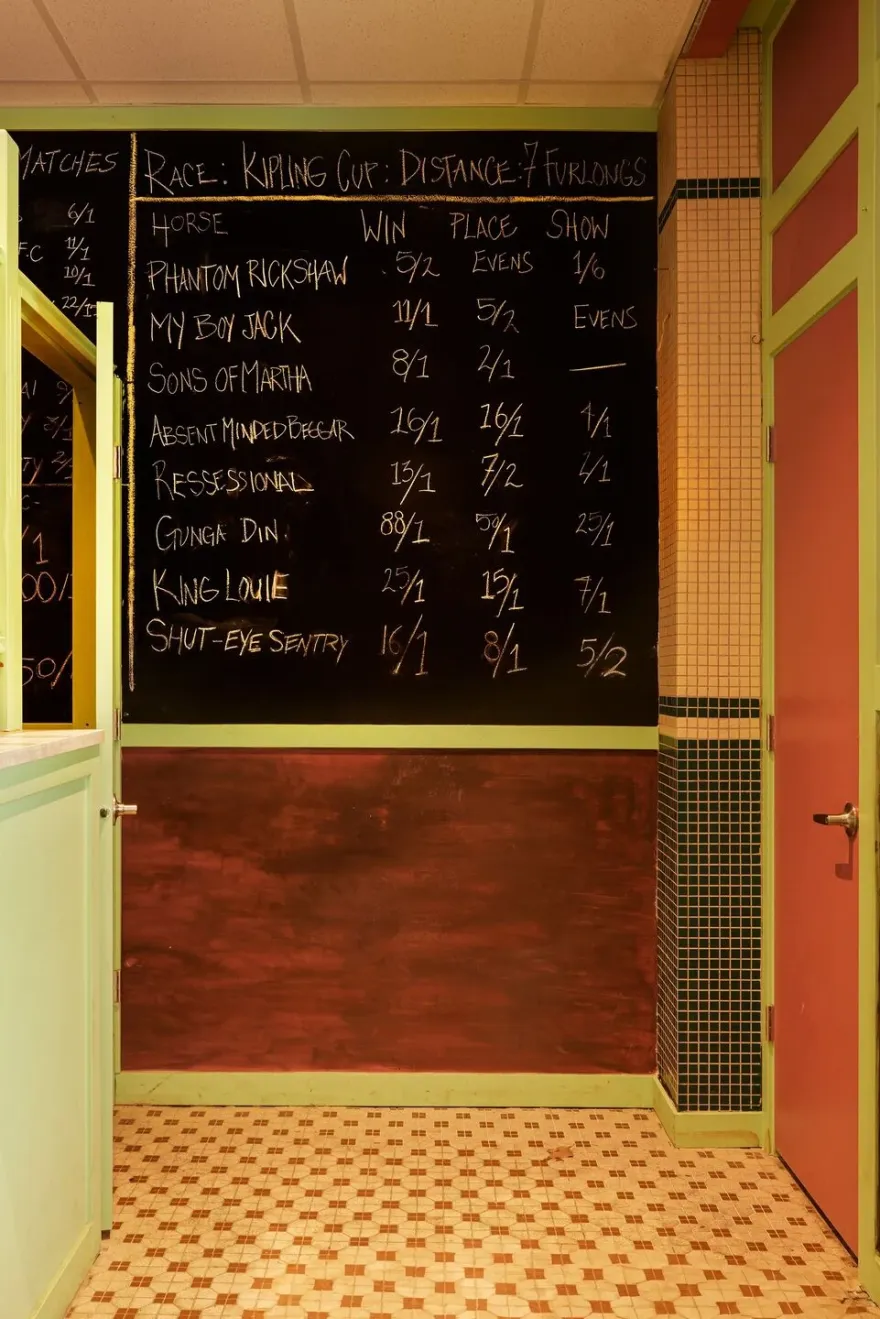 MATCHES
6/1
F.C 11/1
10/1
RACE: KIPLING CUP: DISTANCE: 7 FURLONGS
HORSE WIN PLACE SHOW
PHANTOM RICKSHAW 5/2 EVENS 1/6
MY BOY JACK 11/1 5/2 EVENS
SONS OF MARTHA 8/1 2/1 —
ABSENT MINDED BEGGAR 16/1 16/1 4/1
RESSESSIONAL 13/1 7/2 2/1
GUNGA DIN 88/1 25/1
KING LOUIE 25/1 15/1 7/1
SHUT-EYE SENTRY 16/1 8/1 5/2